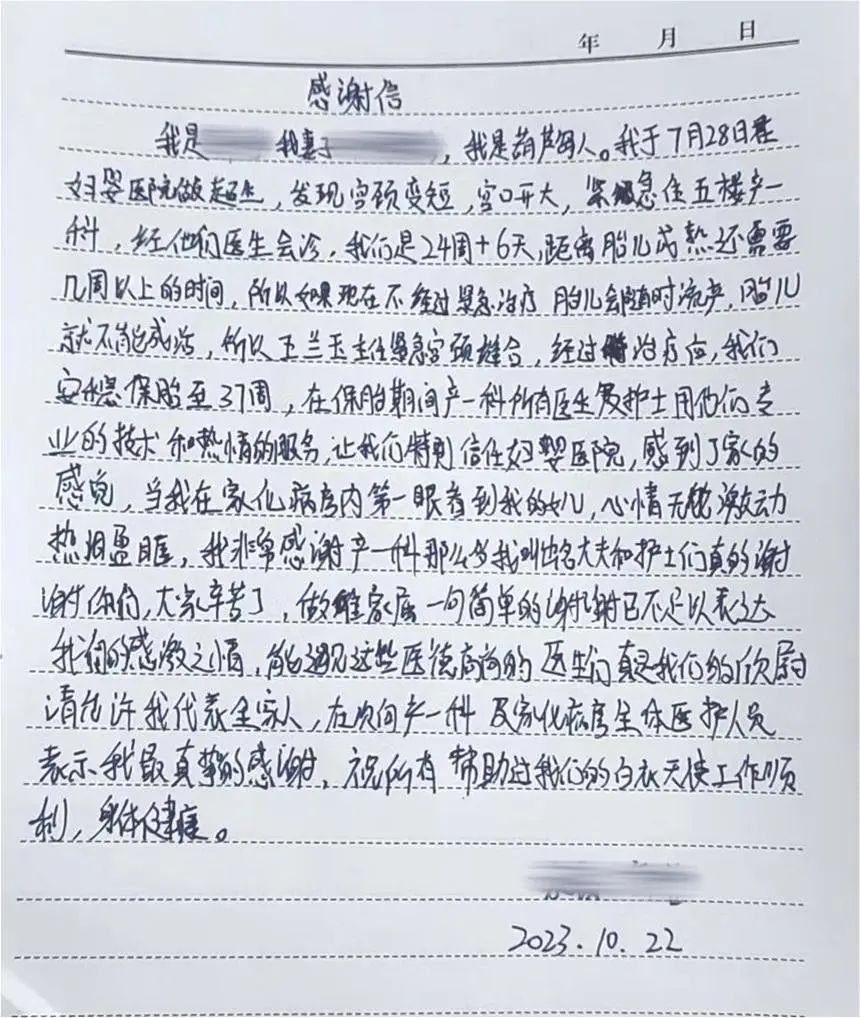 年 月 日
感谢信
我是 我妻子 ,我是葫芦岛人。我于7月28日在
妇婴医院做超生,发现宫颈变短,宫口开大,紧急住五楼产一
科,经他们医生会诊,我们是24周+6天,距离胎儿成熟还需要
几周以上的时间,所以如果现在不经过紧急治疗 胎儿会随时流产,胎儿
就不能成活,所以王兰玉主任紧急宫颈缝合,经过 治疗应,我们
安稳保胎至37周,在保胎期间产一科所有医生及护士用他们专
业的技术和热情的服务,让我们特别信任妇婴医院,感到了家的
感觉,当我在家化病房内第一眼看到我的女儿,心情无比激动
热泪盈眶,我非常感谢产一科那么多我叫 名大夫和护士们真的谢
谢你们,大家辛苦了,做 家属一句简单的谢谢已不足以表达
我们的感激之情,能遇见这些医德高尚的医生们真是我们的欣尉
请允许我代表全家人,在次向产一科及家化病房全体医护人员
表示我最真挚的感谢,祝所有帮助过我们的白衣天使工作顺
利,身体健康。
2023.10.22